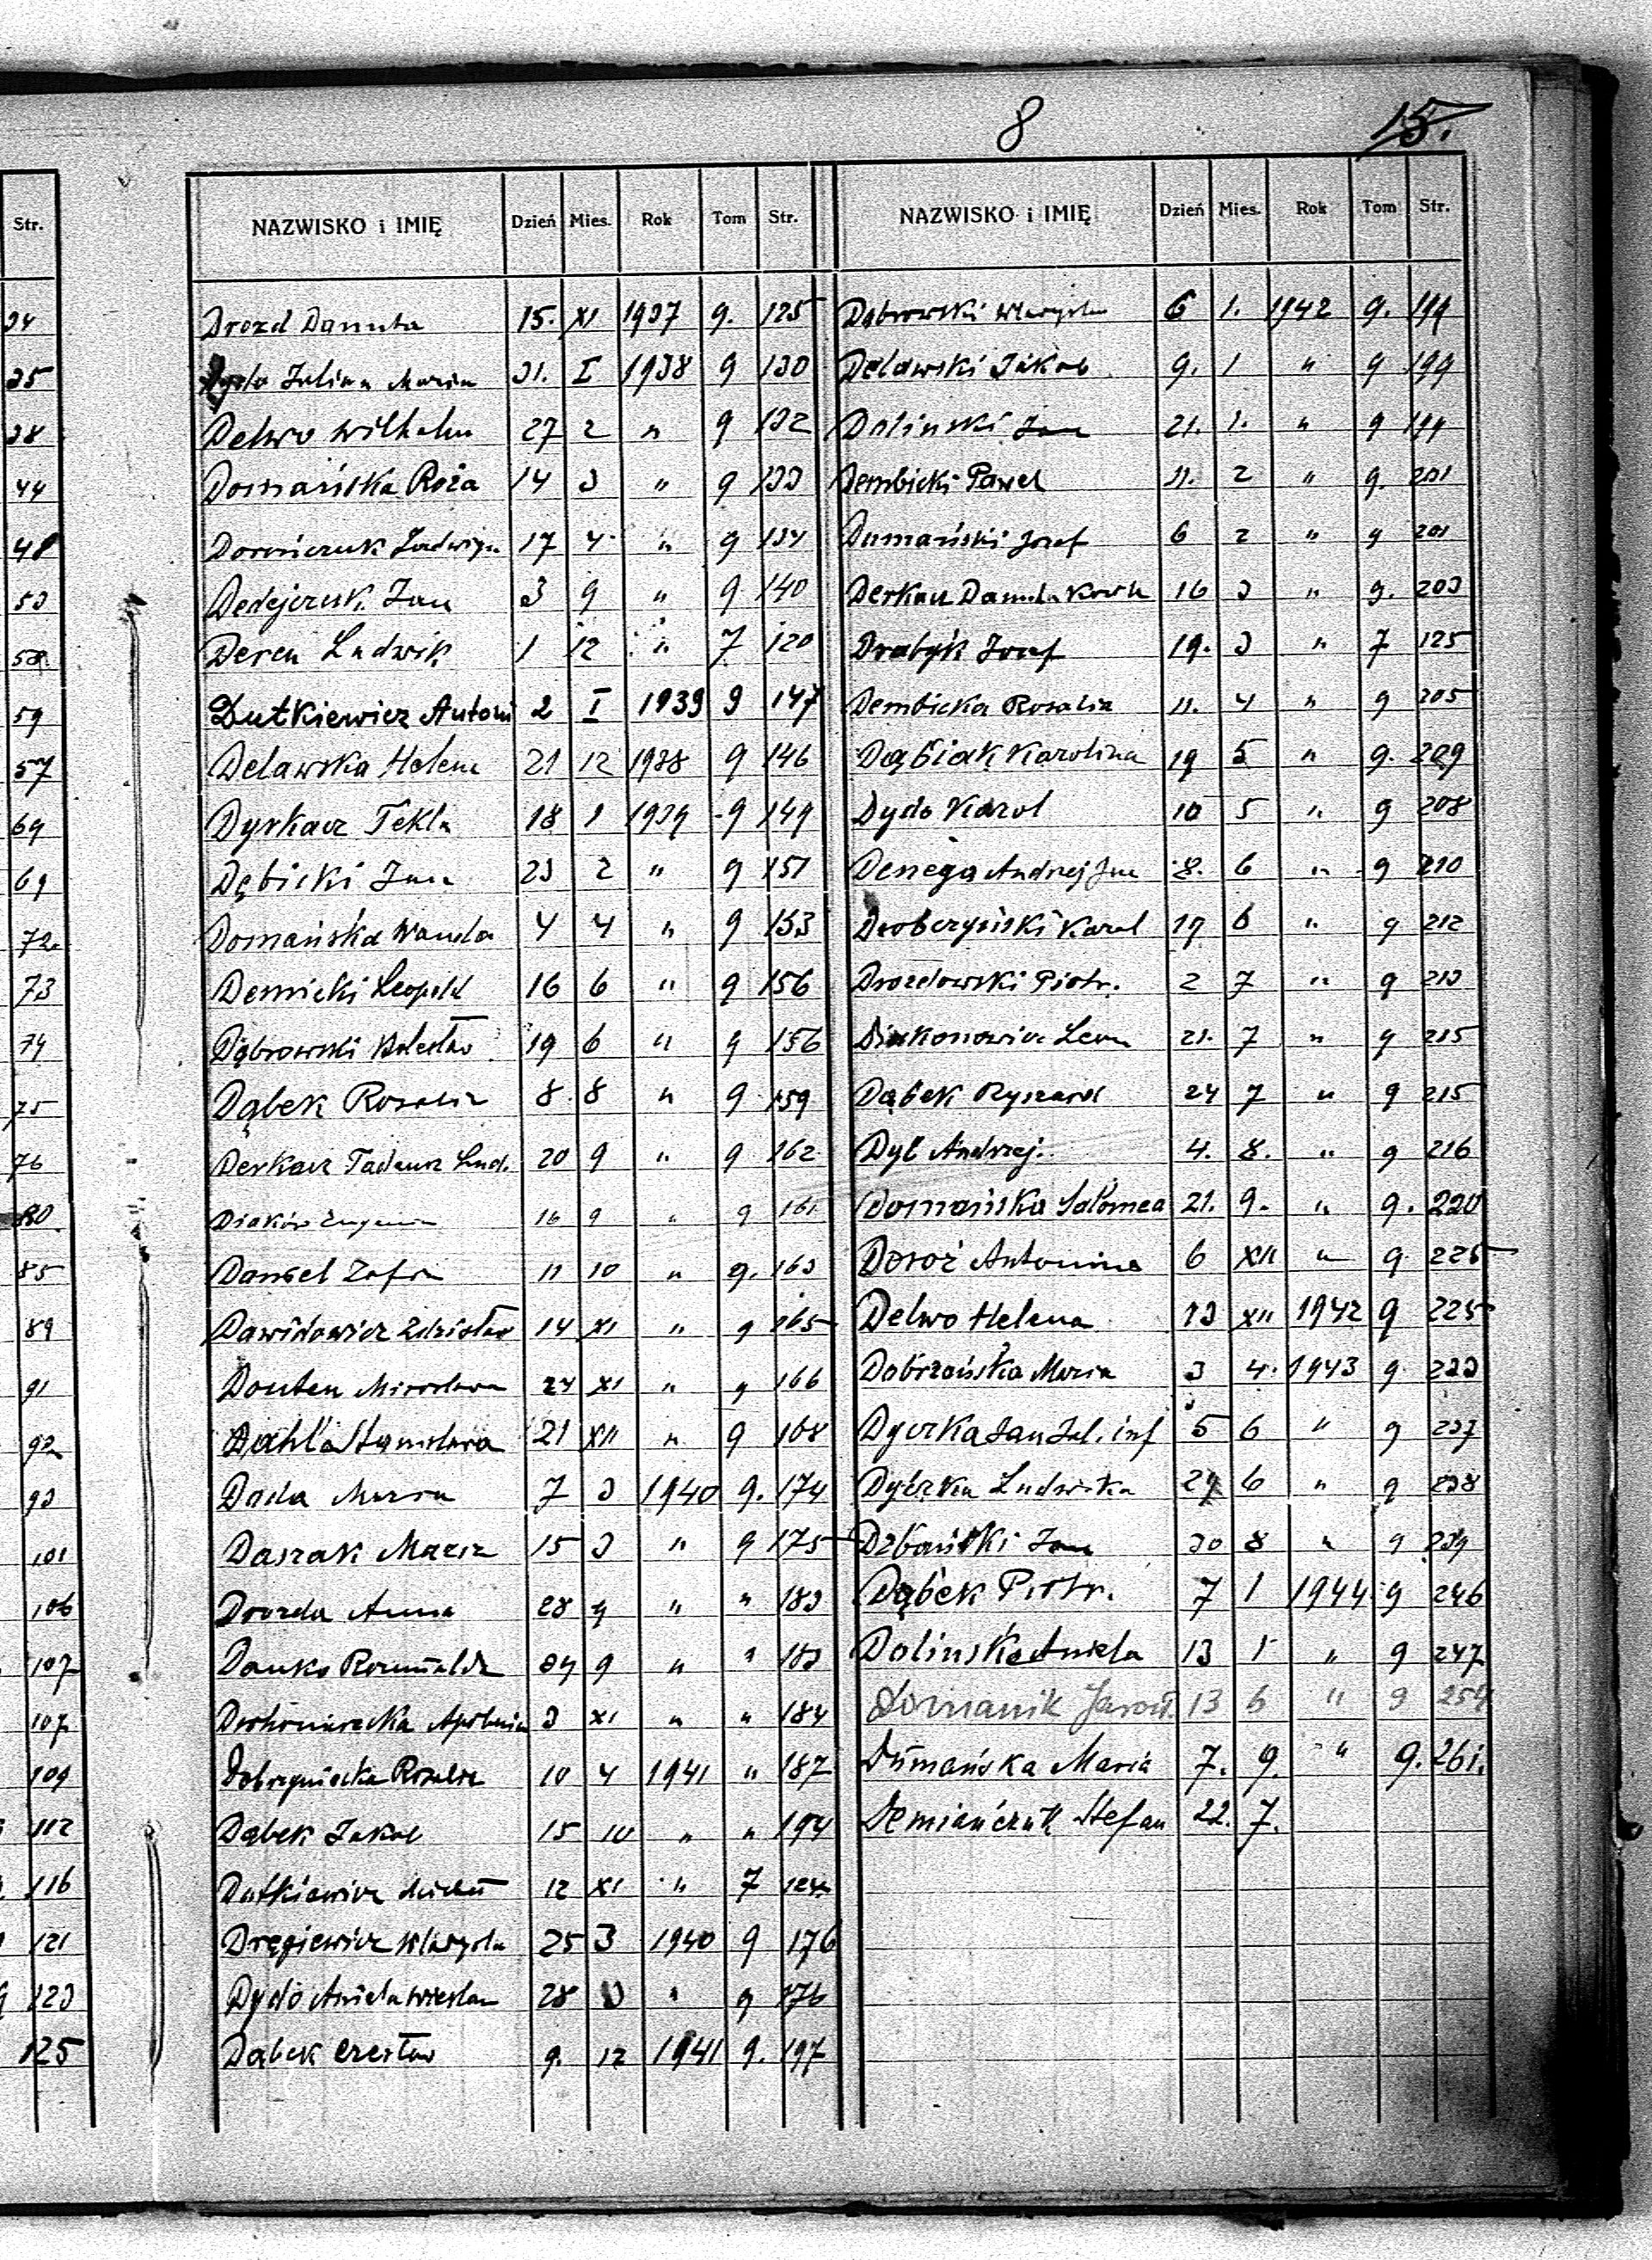 8
15.
Str.
34
35
38
44
48
53
58
59
57
69
69
72
73
74
75
76
80
85
89
91
92
93
101
106
107
107
109
112
116
121
123
125
NAZWISKO i IMIĘ Dzień Mies. Rok Tom Str.
Drozd Danuta 15. XI 1937 9. 125
Julian Maria 31. I 1938 9 130
Delwo Wilhelm 27 2 " 9 132
Domańska Róża 14 3 " 9 133
Ludwiga 17 4 " 9 134
Dedejczuk Jan 3 9 " 9 140
Deren Ludwik 1 12 " 7 120
Dutkiewicz Antoni 2 I 1939 9 147
Delawska Helena 21 12 1938 9 146
Dyrkacz Tekla 18 1 1939 9 149
Dębicki Jan 23 2 " 9 151
Domańska Wanda 4 4 " 9 153
Demicki Leopold 16 6 " 9 156
Dąbrowski Bolesław 19 6 " 9 156
Dąbek Rozalia 8 8 " 9 159
Derkacz Tadeusz Lud. 20 9 " 9 162
Diaków Eugenia 16 9 " 9 161
Daniel Zofia 11 10 " 9. 163
Dawidowicz Zdzisław 14 XI " 9 165
Douten Mirosława 24 XI " 9 166
Stanisława 21 XII " 9 168
Dada Maria 7 3 1940 9. 174
Daszak Maria 15 3 " 9 175
Drozda Anna 28 9 " " 183
Danko Romualda 9 " " 183
Apolonia 3 XI " " 184
Rozalia 10 4 1941 " 187
Dąbek Jakób 15 10 " " 194
Dutkiewicz Michał 12 XI " 7 124
Dręgiewicz Władysła 25 3 1940 9 176
Dydo Aniela Wiesław 28 3 " 9 176
Dąbek Czesław 9. 12 1941 9. 197
NAZWISKO i IMIĘ Dzień Mies. Rok Tom Str.
Dąbrowski Władysław 6 1. 1942 9. 199
Delawski Jakob 9. 1 " 9 199
Doliński Jan 21. 1. " 9 199
Dembicki Paweł 11. 2 " 9. 201
Dumański Józef 6 2 " 9 201
Derkacz Danuta 16 3 " 9. 203
Drabyk Józef 19. 3 " 7 125
Dembicka Rozalia 11. 4 " 9 205
Dąbiak Karolina 19 5 " 9. 209
Dydo Karol 10 5 " 9 208
Denega Andrzej Jan 8. 6 " 9 210
Drobczyński Karol 19 6 " 9 212
Drozdowski Piotr. 2 7 " 9 213
Diakonowicz Leon 21. 7 " 9 215
Dąbek Ryszard 24 7 " 9 215
Dyl Andrzej. 4. 8. " 9 216
Domańska Salomea 21. 9. " 9. 220
Doroż Antonina 6 XII " 9. 225
Delwo Helena 13 XII 1942 9 225
Dobrzańska Maria 3 4. 1943 9. 233
Dyurka Jan Jul. inf 5 6 " 9 237
Ludwika 29 6 " 9 238
Dzbański Jan 30 8 " 9 239
Dąbek Piotr. 7 1 1944 9 246
Dolinska Aniela 13 1 " 9 247
Domanik Jarosł. 13 6 " 9 254
Dumańska Maria 7. 9. " 9. 261.
Demiańczuk Stefan 22. 7.